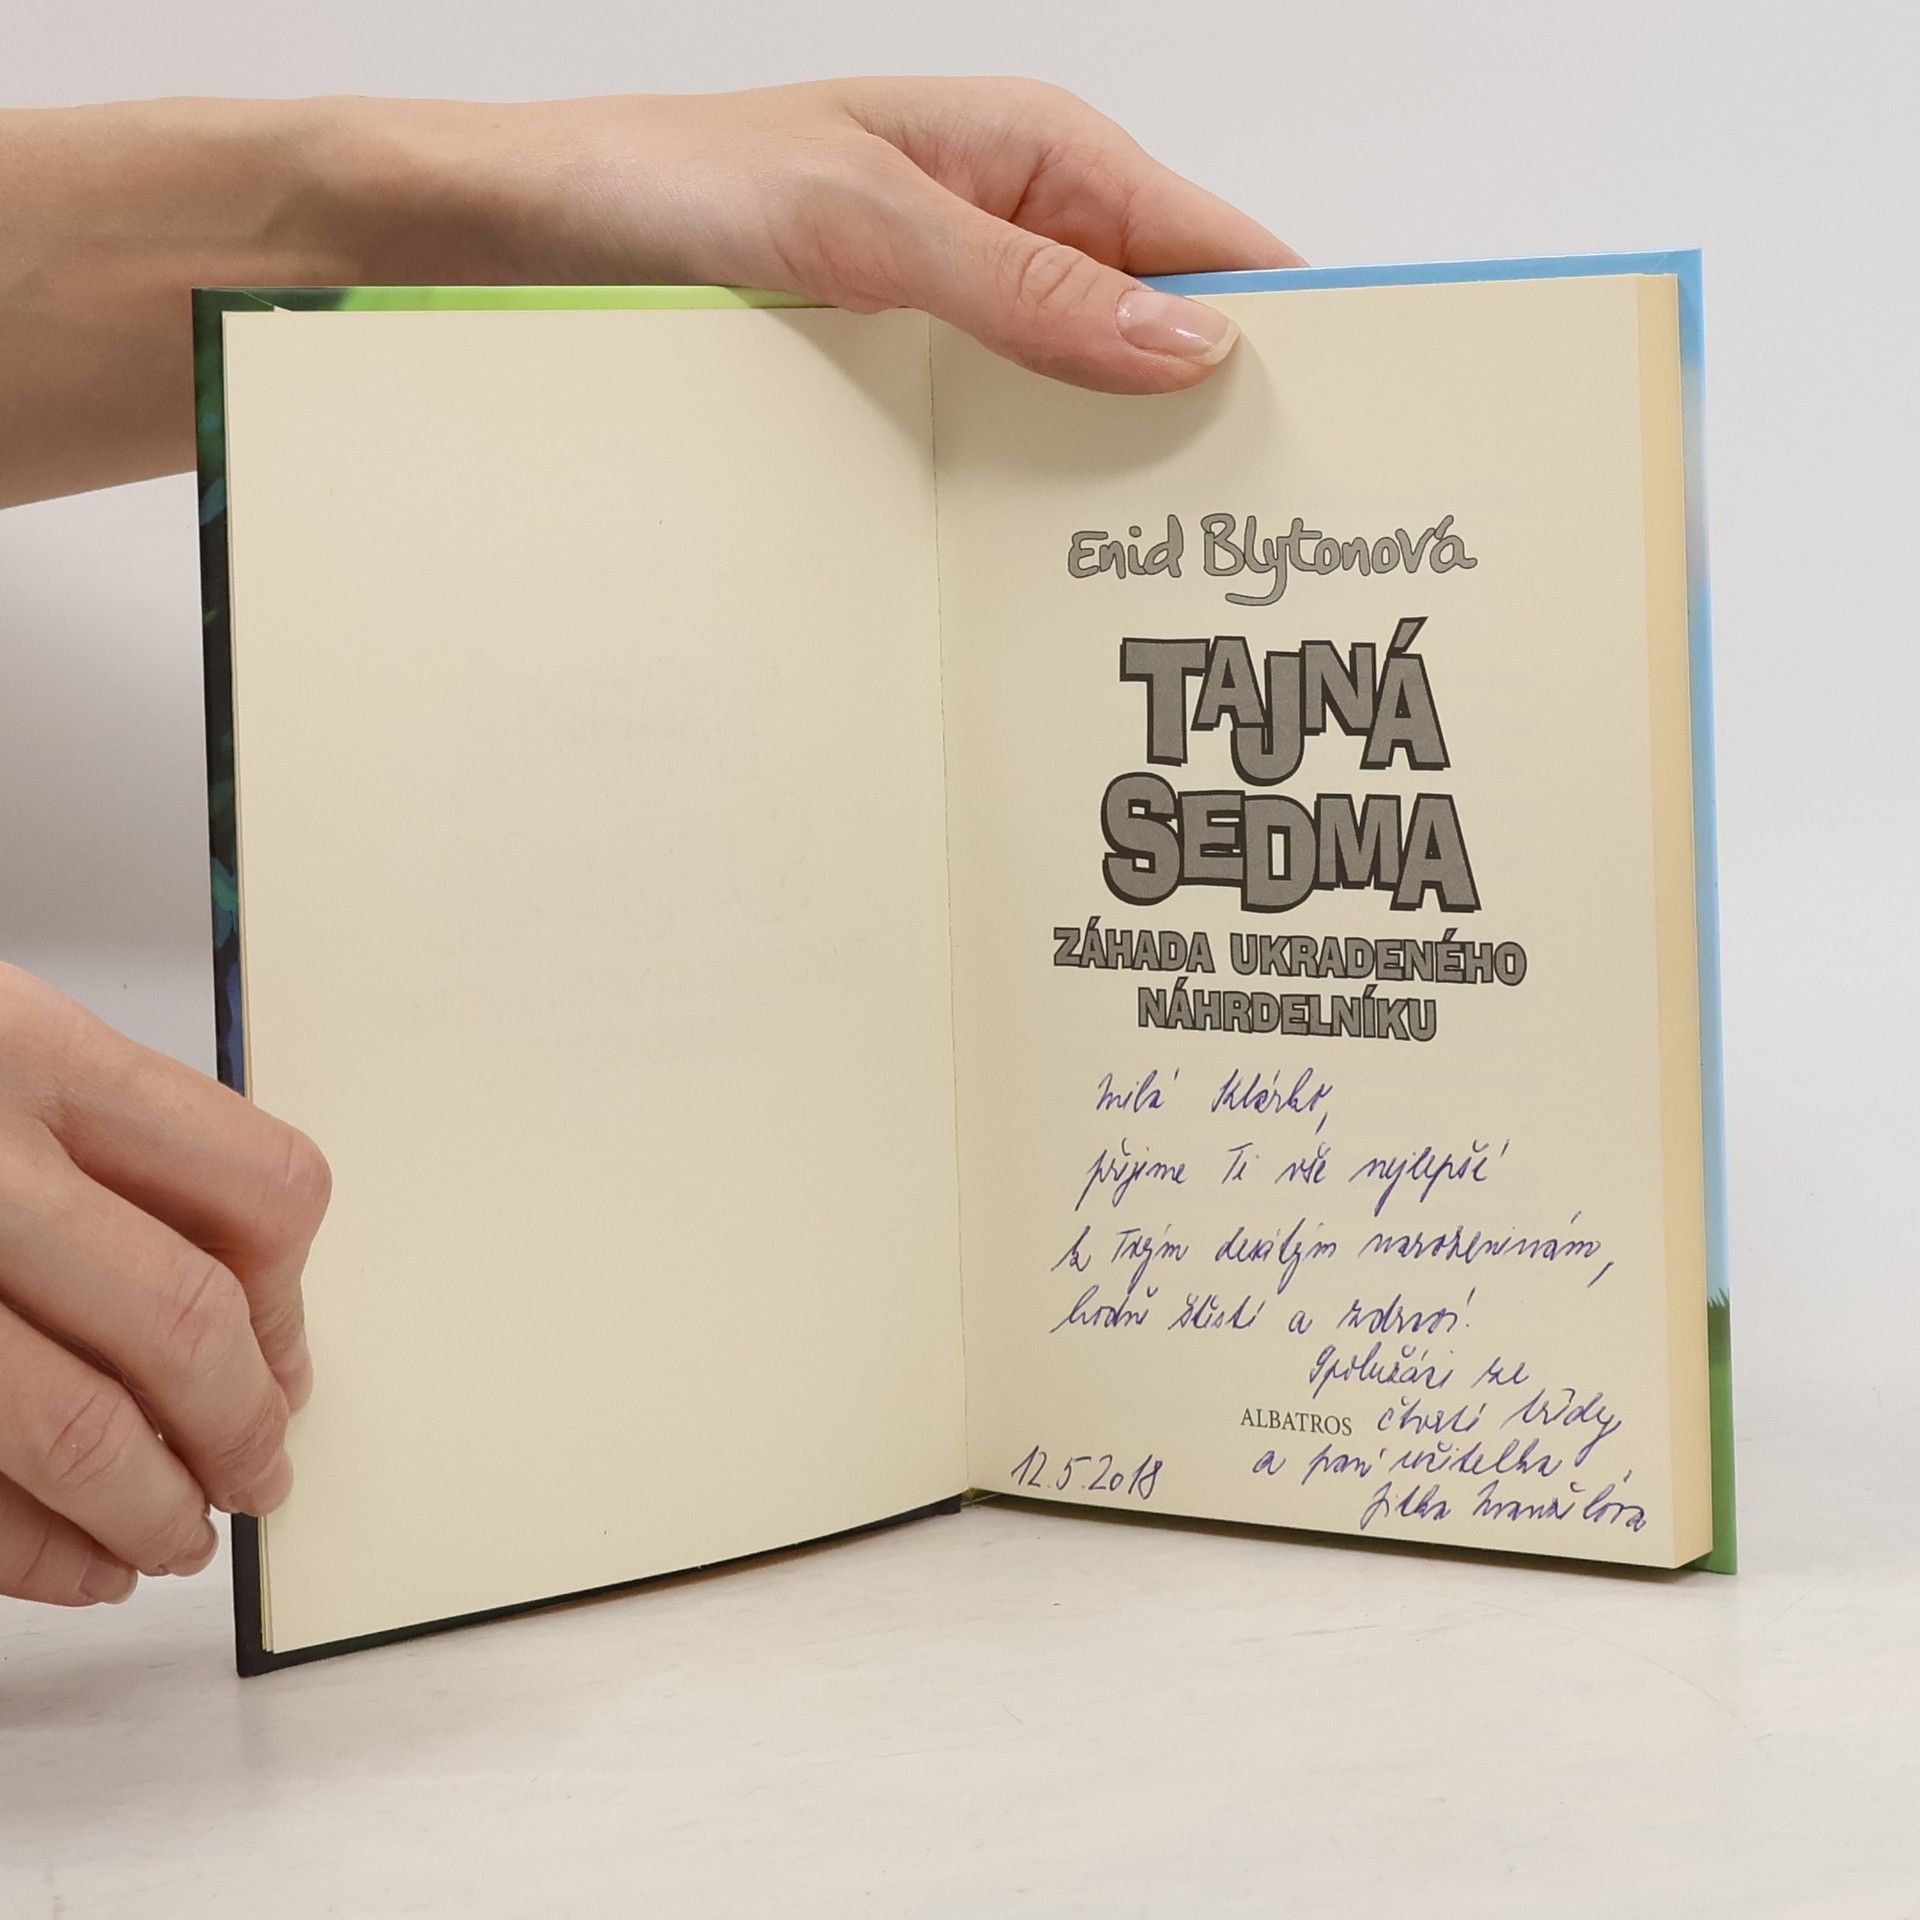 Enid Blytonová
TAJNÁ
SEDMA
ZÁHADA UKRADENÉHO
NÁHRDELNÍKU
Milá Klárko,
přejeme Ti vše nejlepší
k Tvým desátým narozeninám,
hodně štěstí a zdraví!
Spolužáci ze
ALBATROS čtvrté třídy
a paní učitelka
12.5.2018
Jitka